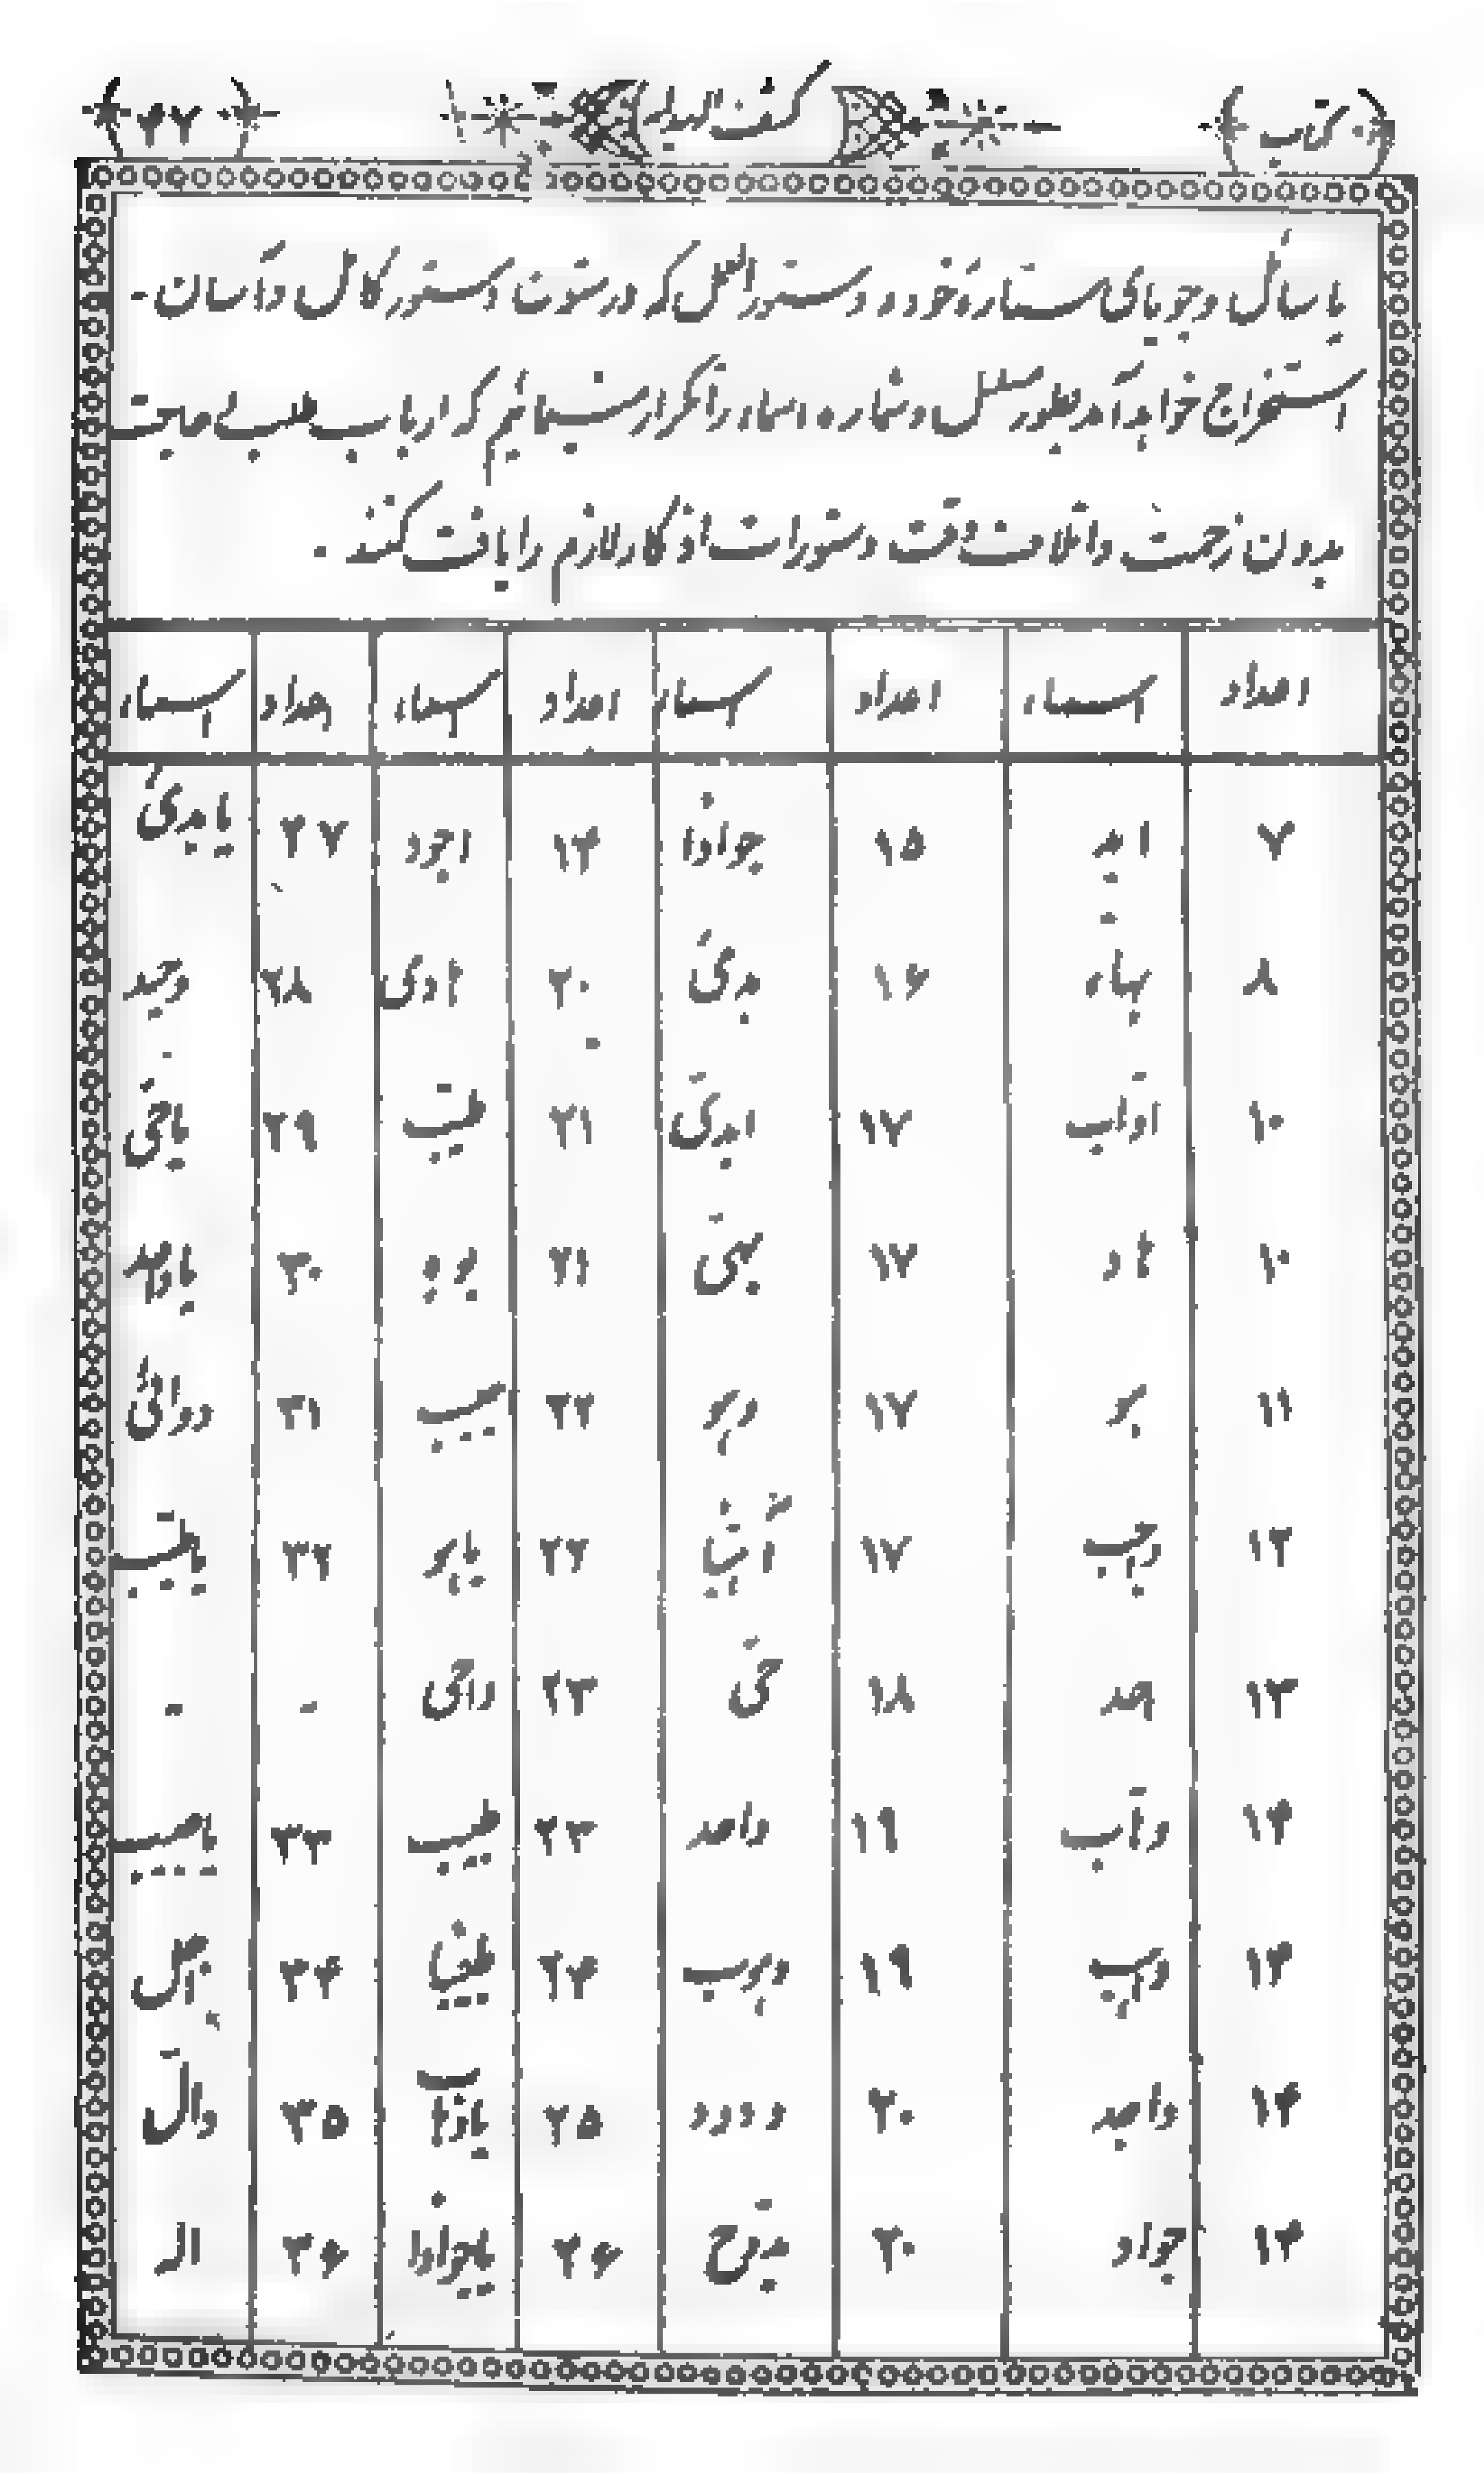 کتاب کشف الهدایه ۴۷
یا سائل و جویای ستارهٔ خود و دستور العمل که در ستون دستور کامل و آسان -
استخراج خواهد آمد بطور مسلسل و شماره اسماء را تکرار مینمائیم که ارباب طلب بے حاجت
بدون زحمت و اتلاف وقت دستورات اذکار لازم را یافت کنند .
اعداد اسماء اعداد اسماء اعداد اسماء اعداد اسماء
۷ ابد ۱۵ جوادا ۱۴ اجود ۲۷ یا بدئ
۸ بهاء ۱۶ بدئ ۲۰ هادی ۲۸ وحید
۱۰ اوّاب ۱۷ ابدیّ ۲۱ طیّب ۲۹ یا حیّ
۱۰ هاد ۱۷ بهیّ ۲۱ بدوه ۳۰ یا واحد
۱۱ هو ۱۷ وهو ۲۲ حبیب ۳۱ دوائی
۱۲ واجب ۱۷ ۲۲ یا هو ۳۲ یا طیّب
۱۳ احد ۱۸ حیّ ۲۳ واحی - -
۱۴ وهّاب ۱۹ واحد ۲۳ طبیب ۳۳ یا حبیب
۱۴ واهب ۱۹ وهوب ۲۴ طیبا ۳۴
۱۴ واجد ۲۰ ودود ۲۵ یا وهاب ۳۵ والّ
۱۴ جواد ۲۰ ۲۶ یا جوادا ۳۶ اله